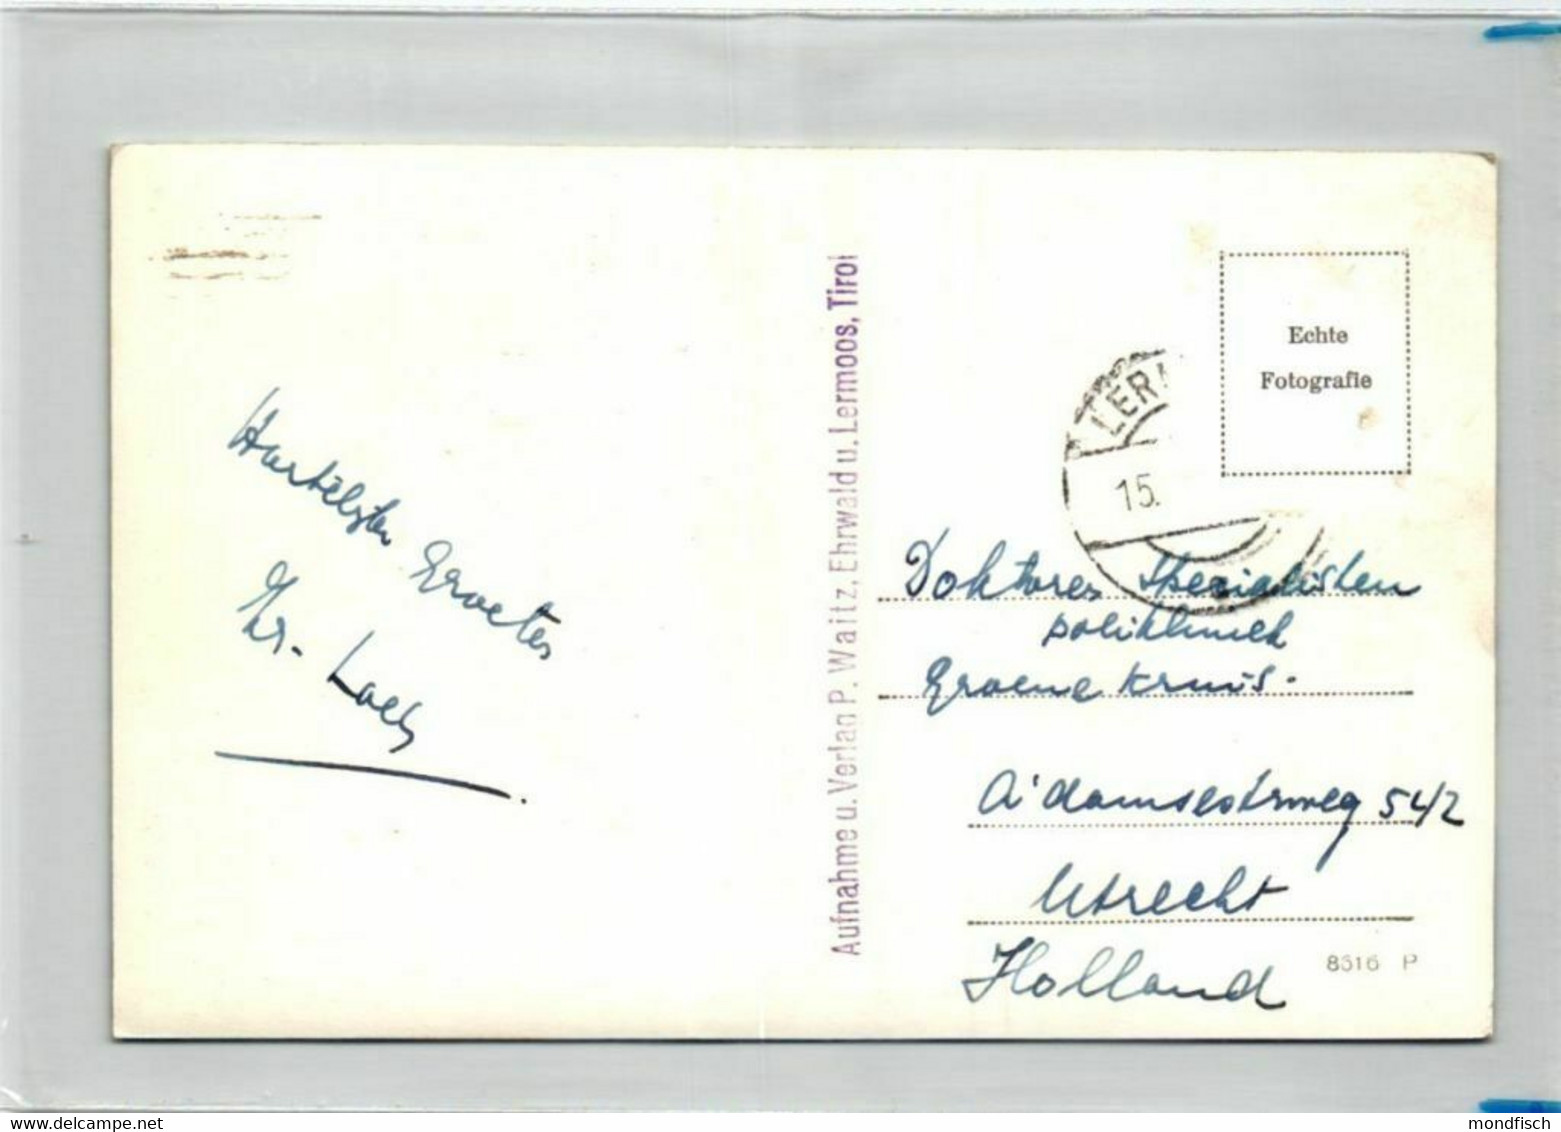 Hartelyke
Groetes
Aufnahme u. Verlag P. Waitz, Ehrwald u. Lermoos, Tirol
Echte
Fotografie
LER
15.
Doktores Spezialisten
polikliniek
Groene Kruis.
A'damsestrweg 54/2
Utrecht
Holland
8616 P
mondfisch